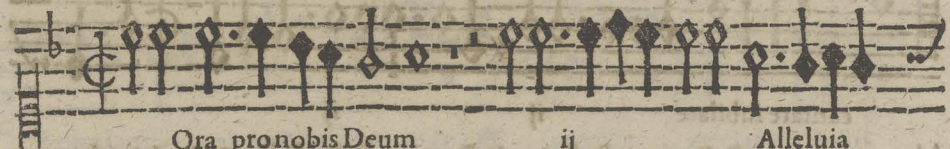 Ora pro nobis Deum ij Alleluia